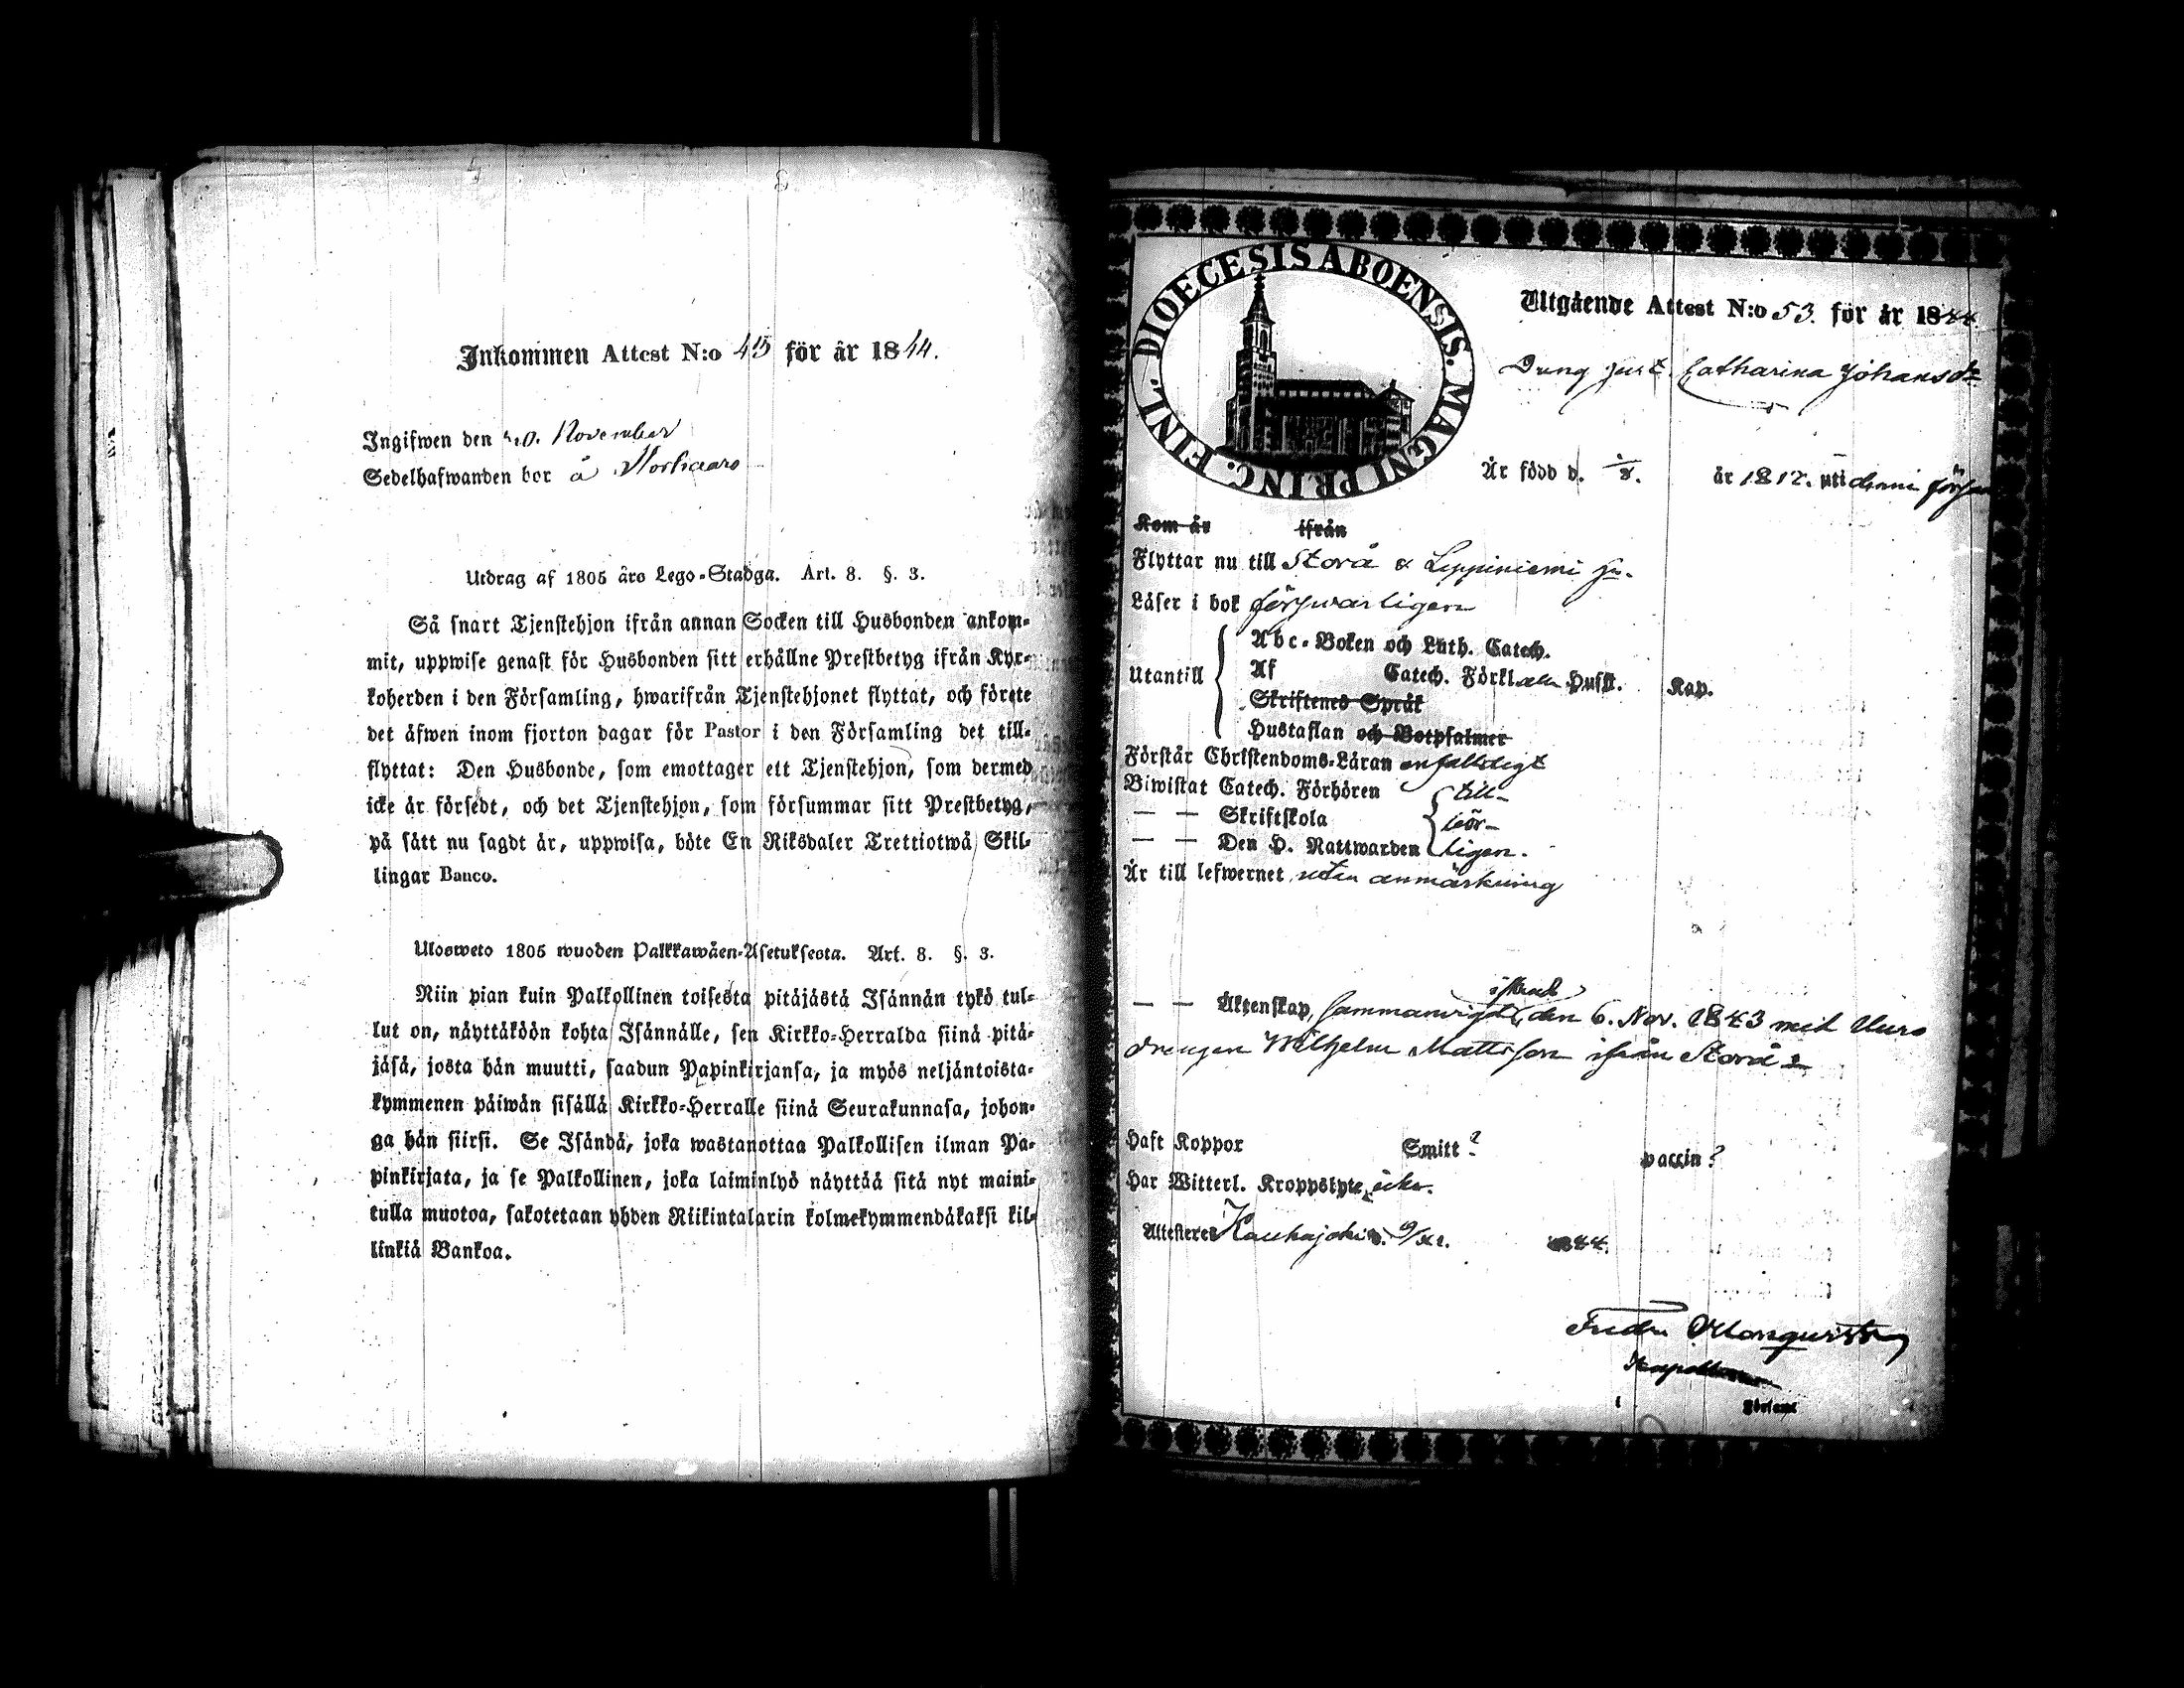 Inkommen Attest N:o 45 för år 1844.
Ingifwen den 10. November
Sedelhafwanden bor å
Utdrag af 1805 års Lego-Stadga. Art. 8. §. 3.
Så snart Tjenstehjon ifrån annan Socken till Husbonden ankom-
mit, uppwise genast för Husbonden sitt erhållne Prestbetyg ifrån Kyr-
koherden i den Församling, hwarifrån Tjenstehjonet flyttat, och förete
det äfwen inom fjorton dagar för Pastor i den Församling det till-
flyttat: Den Husbonde, som emottager ett Tjenstehjon, som dermed
icke är försedt, och det Tjenstehjon, som försummar sitt Prestbetyg,
på sätt nu sagdt är, uppwisa, böte En Riksdaler Trettiotwå Skil-
lingar Banco.
Ulosweto 1805 wuoden Palkkawäen-Asetuksesta. Art. 8. §. 3.
Niin pian kuin Palkollinen toisesta pitäjästä Isännän tykö tul-
lut on, näyttäköön kohta Isännälle, sen Kirkko-Herralda siinä pitä-
jäsä, josta hän muutti, saadun Papinkirjansa, ja myös neljäntoista-
kymmenen päiwän sisällä Kirkko-Herralle siinä Seurakunnasa, johon-
ga hän siirsi. Se Isändä, joka wastanottaa Palkollisen ilman Pa-
pinkirjata, ja se Palkollinen, joka laiminlyö näyttää sitä nyt maini-
tulla muotoa, sakotetaan yhden Riikintalarin kolmekymmendäkaksi kil-
linkiä Bankoa.
DIOECESIS ABOENSIS. MAGNI PRINC. FINL.
Utgående Attest N:o 53. för år 1844.
Catharina Johansdr
Är född d. /8. år 1817. uti denna förs
Kom år ifrån
Flyttar nu till Storå & Leppiniemi
Läser i bok förswarligen
Utantill
Abc-Boken och Luth. Catech.
Af Catech. Förkl. alla Husst. Kap.
Skriftenes Språk
Hustaflan och Botpsalmer
Förstår Christendoms-Läran enfalldigt
Biwistat Catech. Förhören till-
— — Skriftskola bör-
— — Den H. Nattwarden ligen.
Är till lefwernet utan anmärkning
— — Äktenskap, Sammanvigd den 6. Nov. 1843 med
drengen Wilhelm Mattsson ifrån Storå
Haft Koppor Smitt? vaccin?
Har Witterl. Kroppslyte icke.
Attesteres Kauhajoki d. 9/XI. 1844.